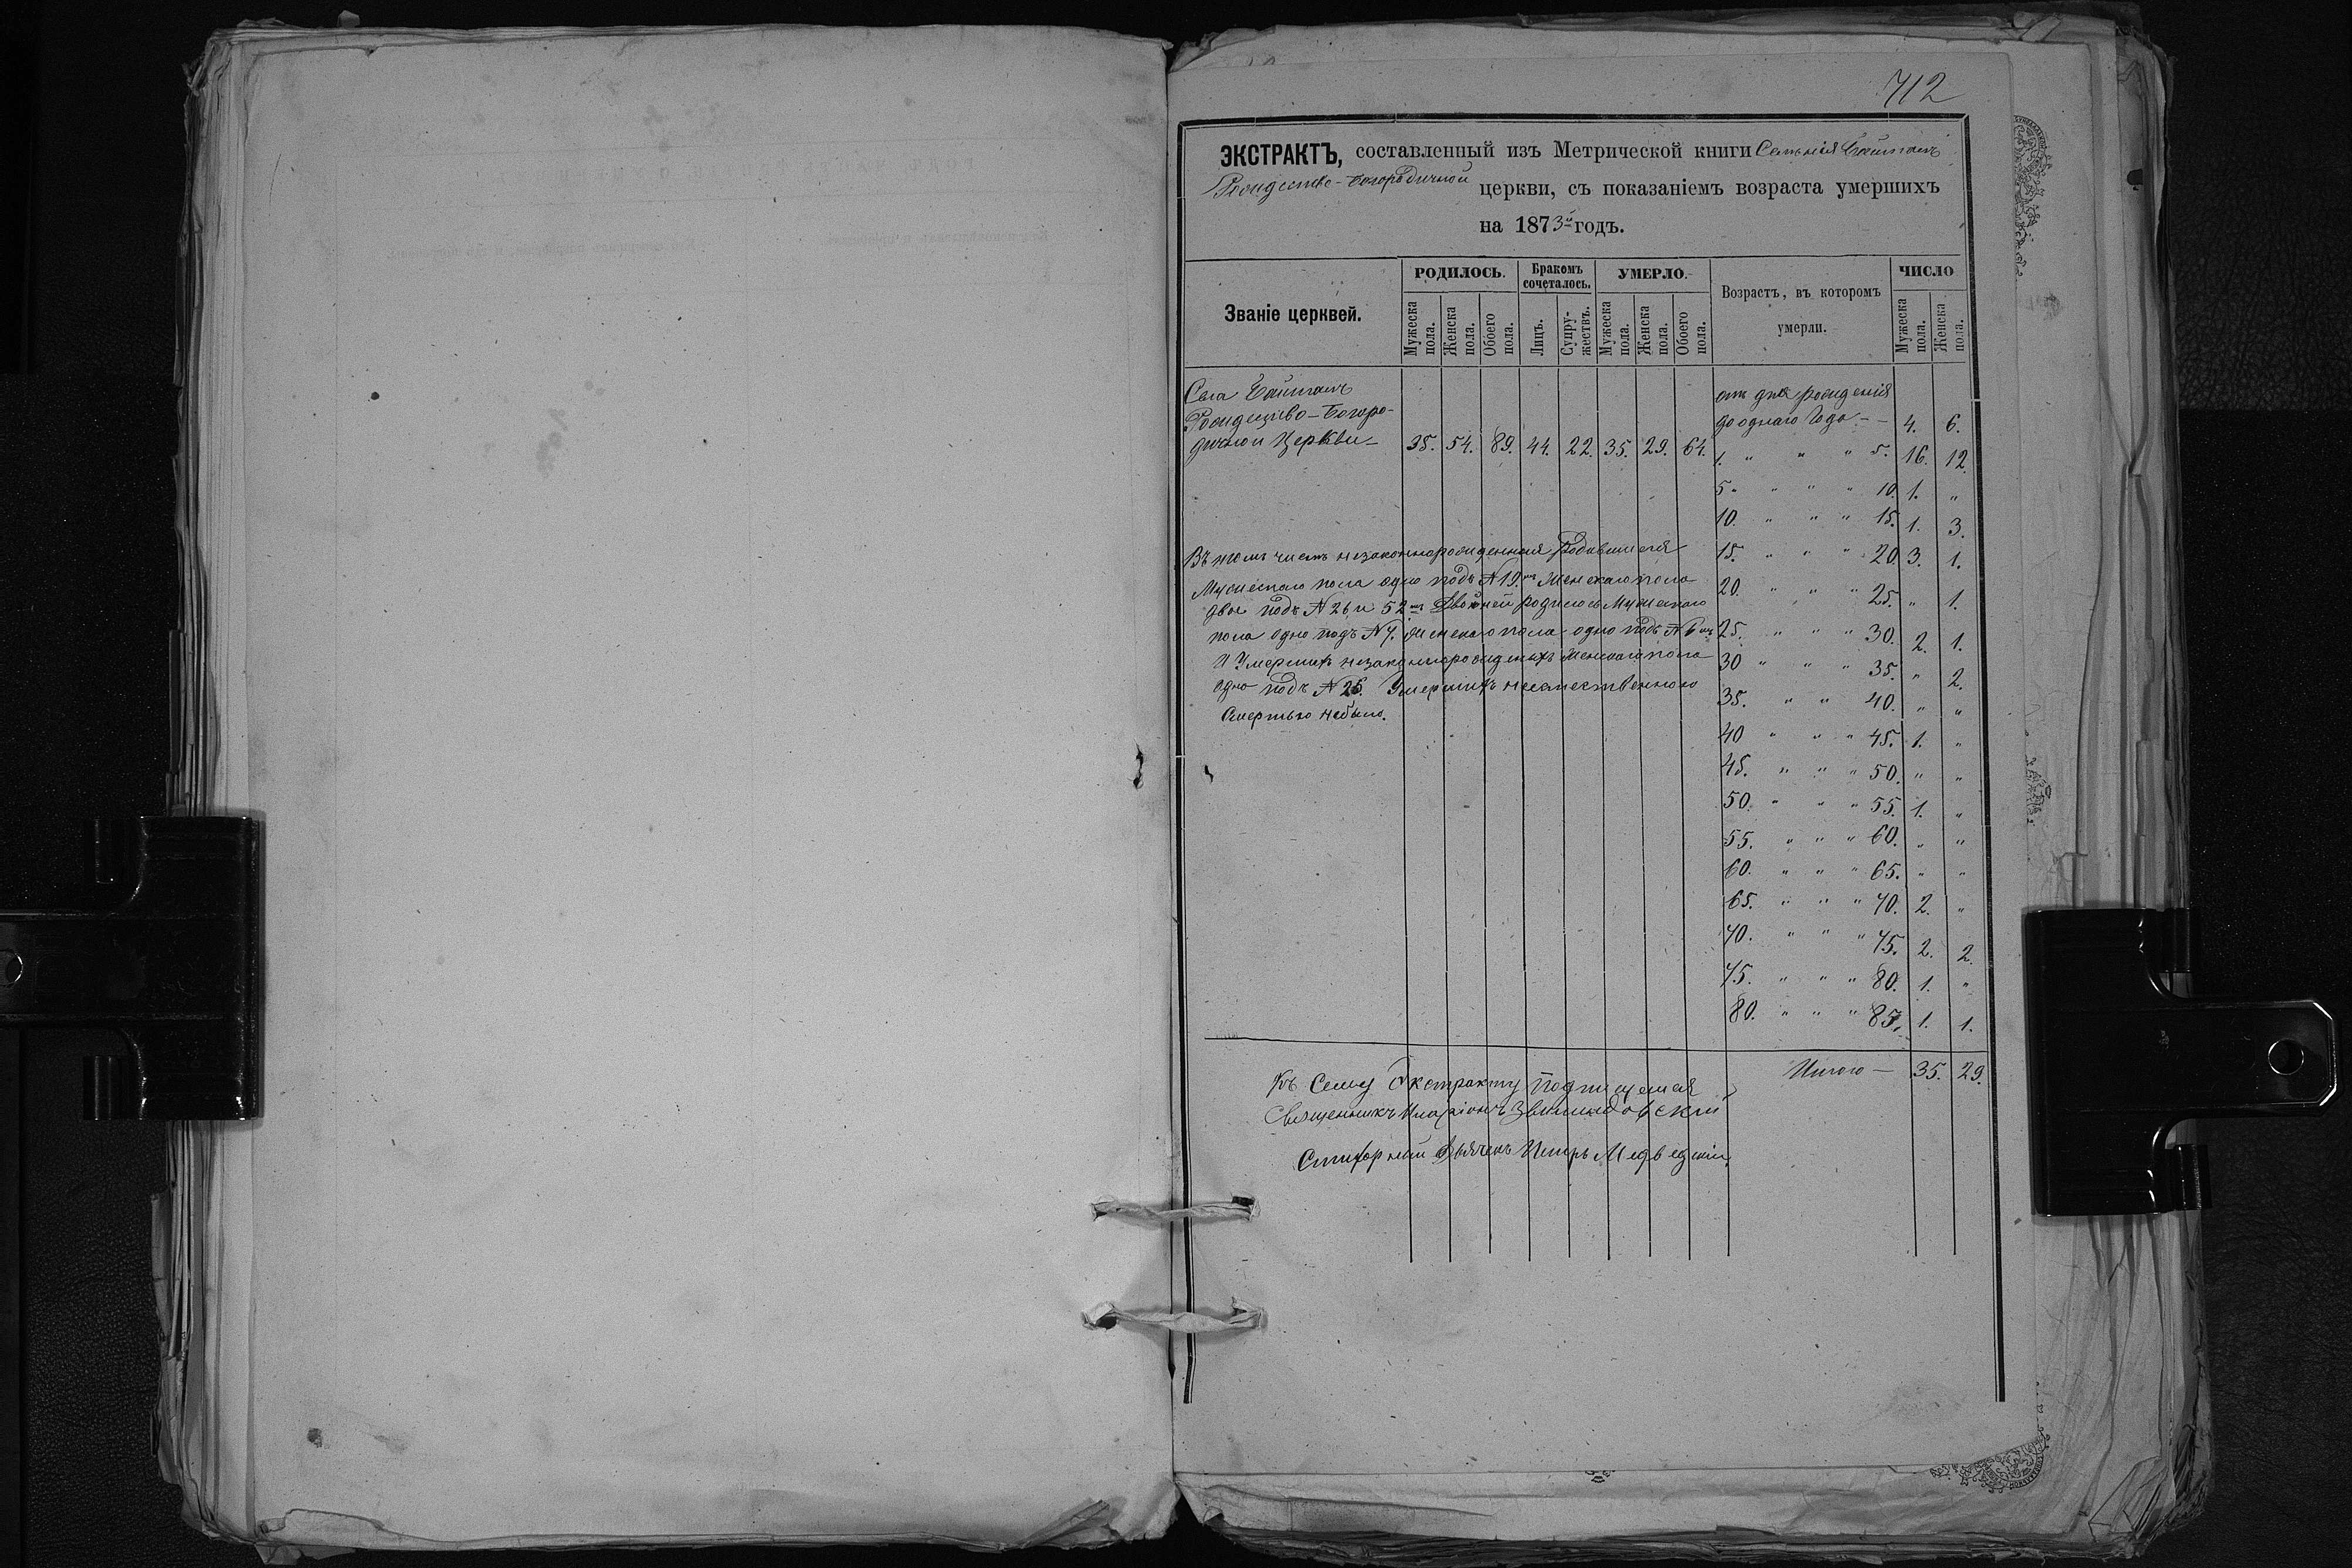 712
ЭКСТРАКТЪ, составленный изъ Метрической книги
Рождество-Богородичной церкви, съ показаніемъ возраста умершихъ
на 1873й годъ.
Званіе церквей.
РОДИЛОСЬ.
Бракомъ сочеталось.
УМЕРЛО.
Возрастъ, въ которомъ умерли.
ЧИСЛО
Мужеска пола.
Женска пола.
Обоего пола.
Лицъ.
Супружествъ.
Мужеска пола.
Женска пола.
Обоего пола.
Мужеска пола.
Женска пола.
Села
Рождество-Богоро-
дичной Церкви- 35. 54. 89. 44. 22. 35. 29. 64.
отъ дня рожденія
до однаго Года - - 4. 6.
1. " " " 5. 16. 12.
5 " " " " 10. 1. "
10. " " " 15. 1. 3.
15. " " " 20. 3. 1.
20. " " " 25. " 1.
25. " " " 30. 2. 1.
30 " " " 35. " 2.
35. " " 40. " "
40 " " " 45. 1. "
45. " " " 50. " "
50. " " " 55. 1. "
55. " " " 60. " "
60. " " " 65. " "
65. " " " 70. 2. "
70. " " " 75. 2. 2.
75. " " " 80. 1. "
80. " " " 85. 1. 1.
Итого — 35. 29.
Въ томъ числѣ незаконнорожденная Родившихся
Мужескаго пола одно подъ № 19.мъ Женскаго пола
двое подъ № 26 и 52мъ Двойней родилось Мужескаго
пола одно подъ № 7. женскаго пола одно подъ № 6мъ
И Умершихъ незаконнорожденыхъ Женскаго пола
одно подъ № 25. Умершихъ неестественною
Смертью небыло.
Къ Сему Экстракту Подпишемся
Священникъ Иларіонъ
Стихарный Дьячекъ Петръ Медвецкій